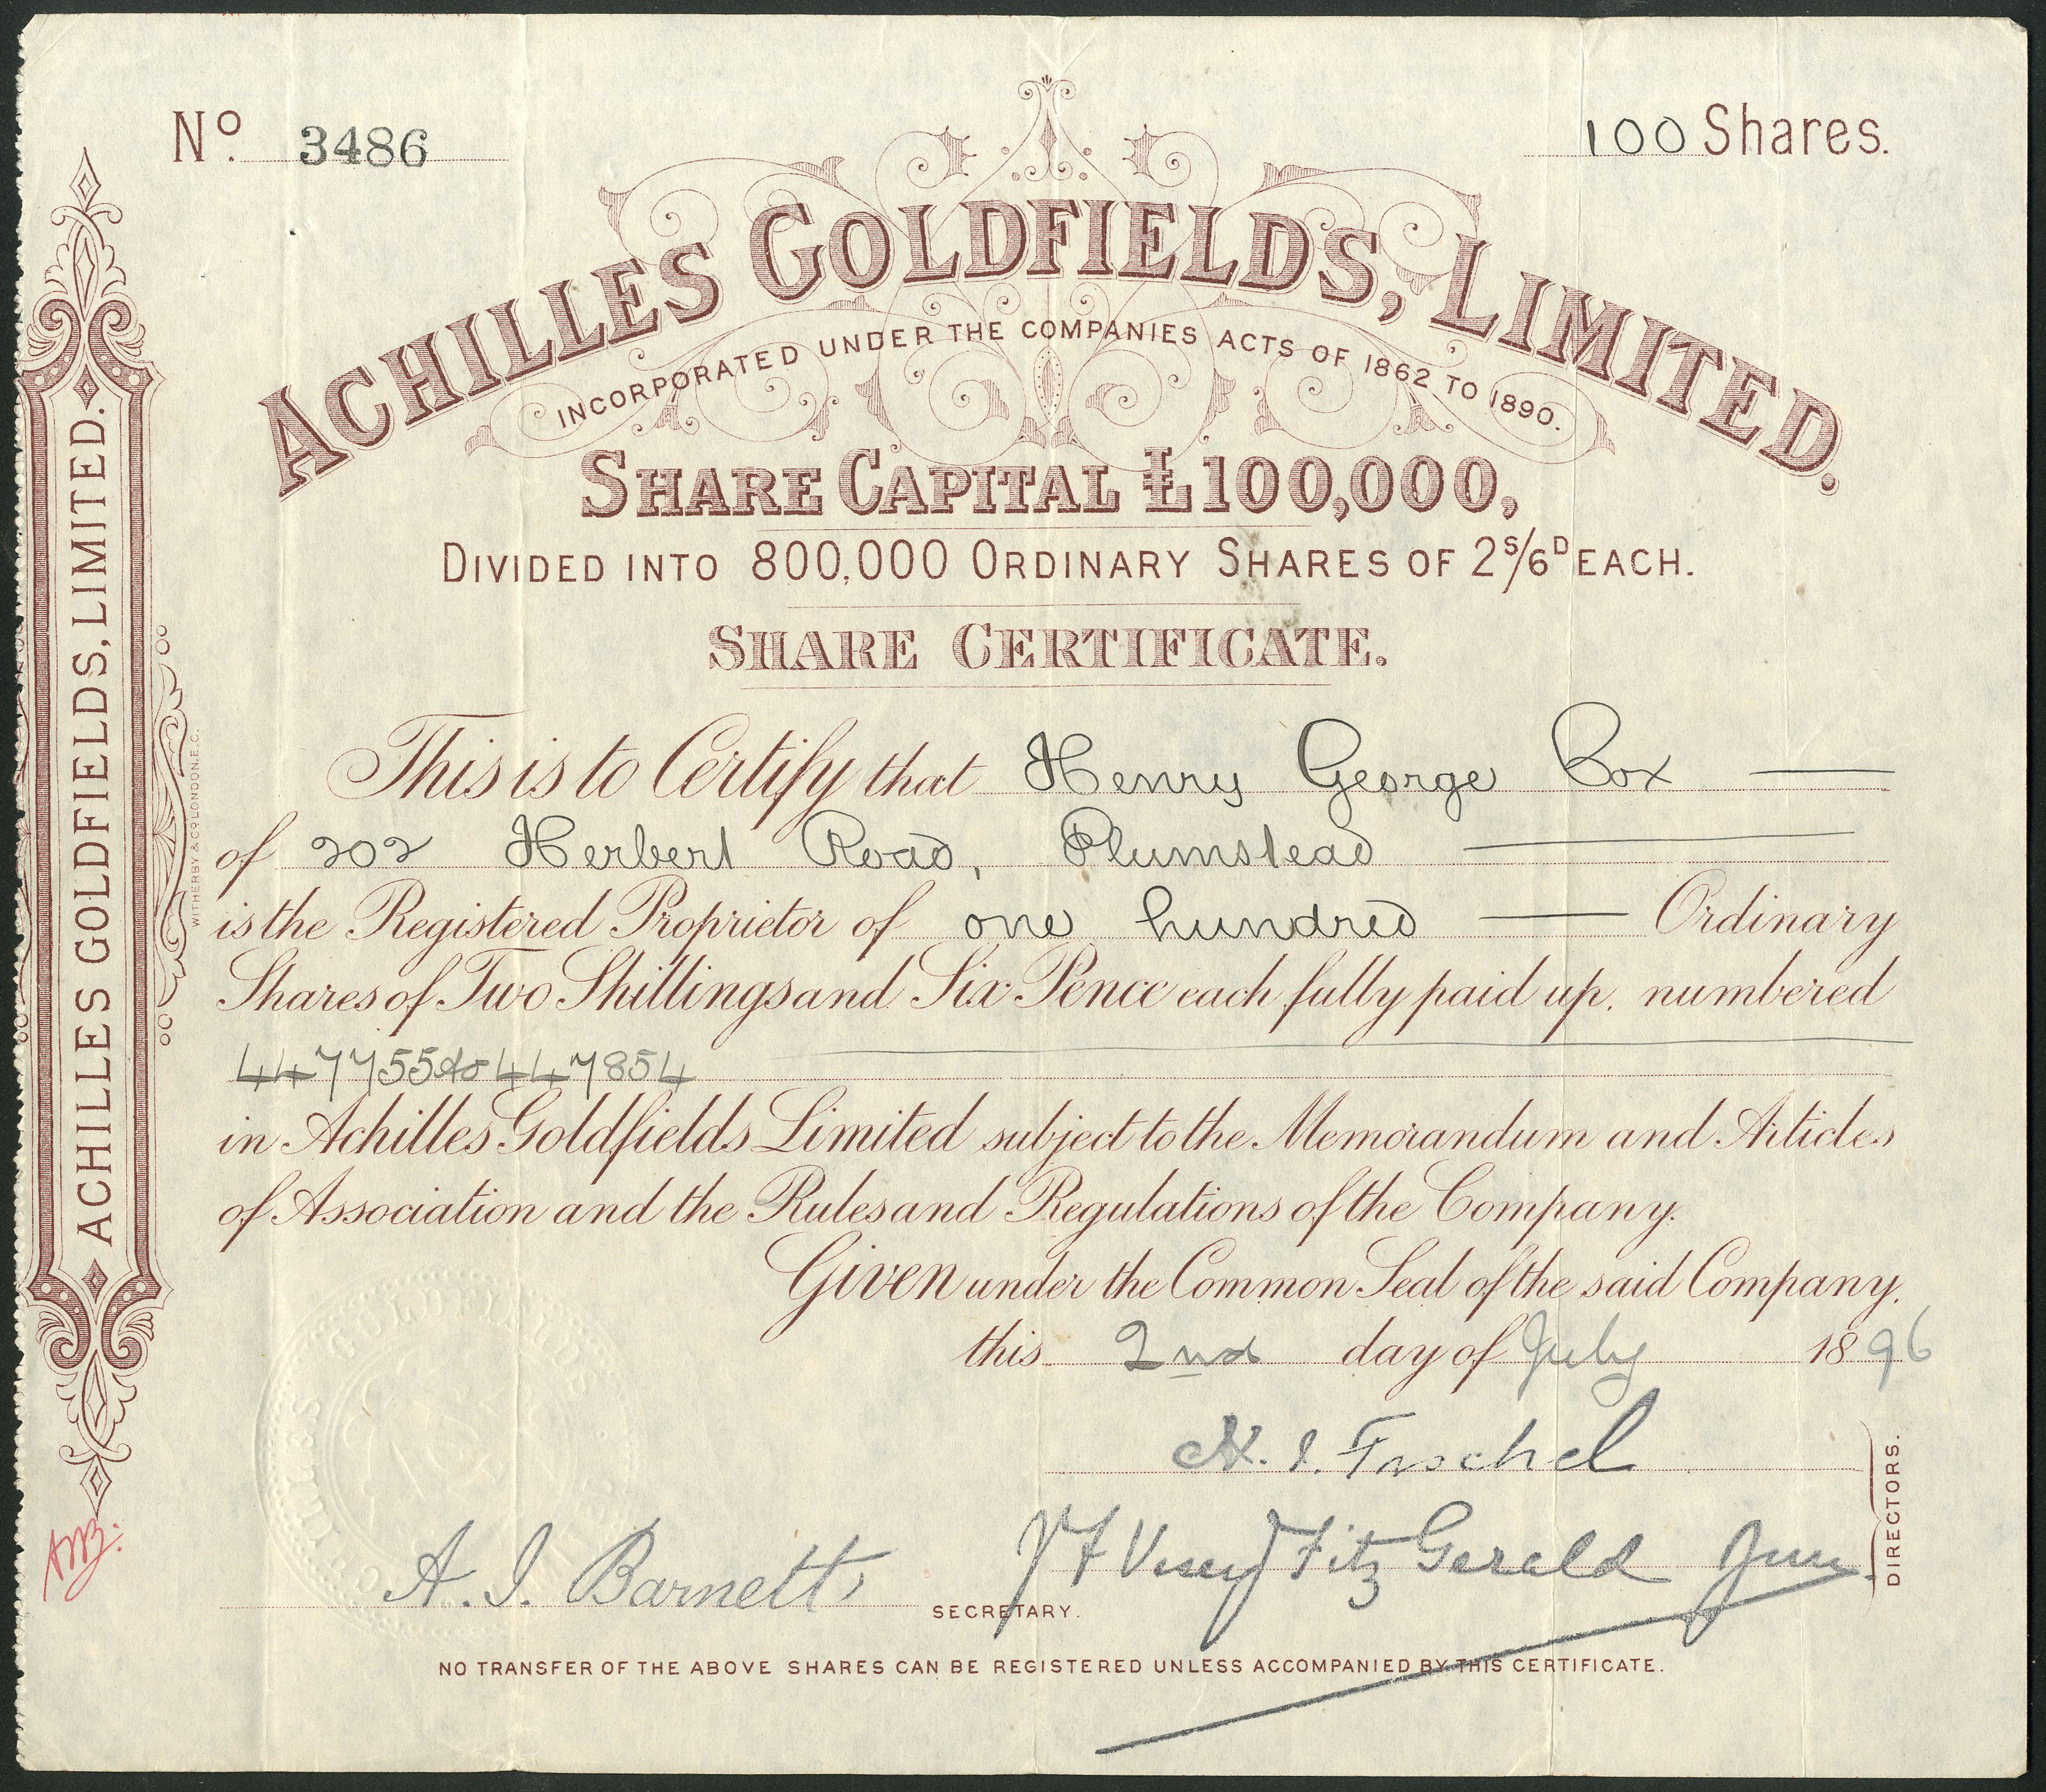 No. 3486
100 Shares.
ACHILLES GOLDFIELDS, LIMITED.
INCORPORATED UNDER THE COMPANIES ACTS OF 1862 TO 1890.
SHARE CAPITAL £100,000,
DIVIDED INTO 800,000 ORDINARY SHARES OF 2S/6D EACH.
SHARE CERTIFICATE.
This is to Certify that Henry George Box
of 202 Herbert Road, Plumstead
is the Registered Proprietor of one hundred Ordinary
Shares of Two Shillings and Six Pence each fully paid up, numbered
447755 to 447854
in Achilles Goldfields Limited subject to the Memorandum and Articles
of Association and the Rules and Regulations of the Company.
Given under the Common Seal of the said Company,
this 2nd day of July 1896
DIRECTORS.
Fitz Gerald
A. I. Barnett,
SECRETARY.
NO TRANSFER OF THE ABOVE SHARES CAN BE REGISTERED UNLESS ACCOMPANIED BY THIS CERTIFICATE.
ACHILLES GOLDFIELDS, LIMITED.
WITHERBY & CO LONDON. E.C.